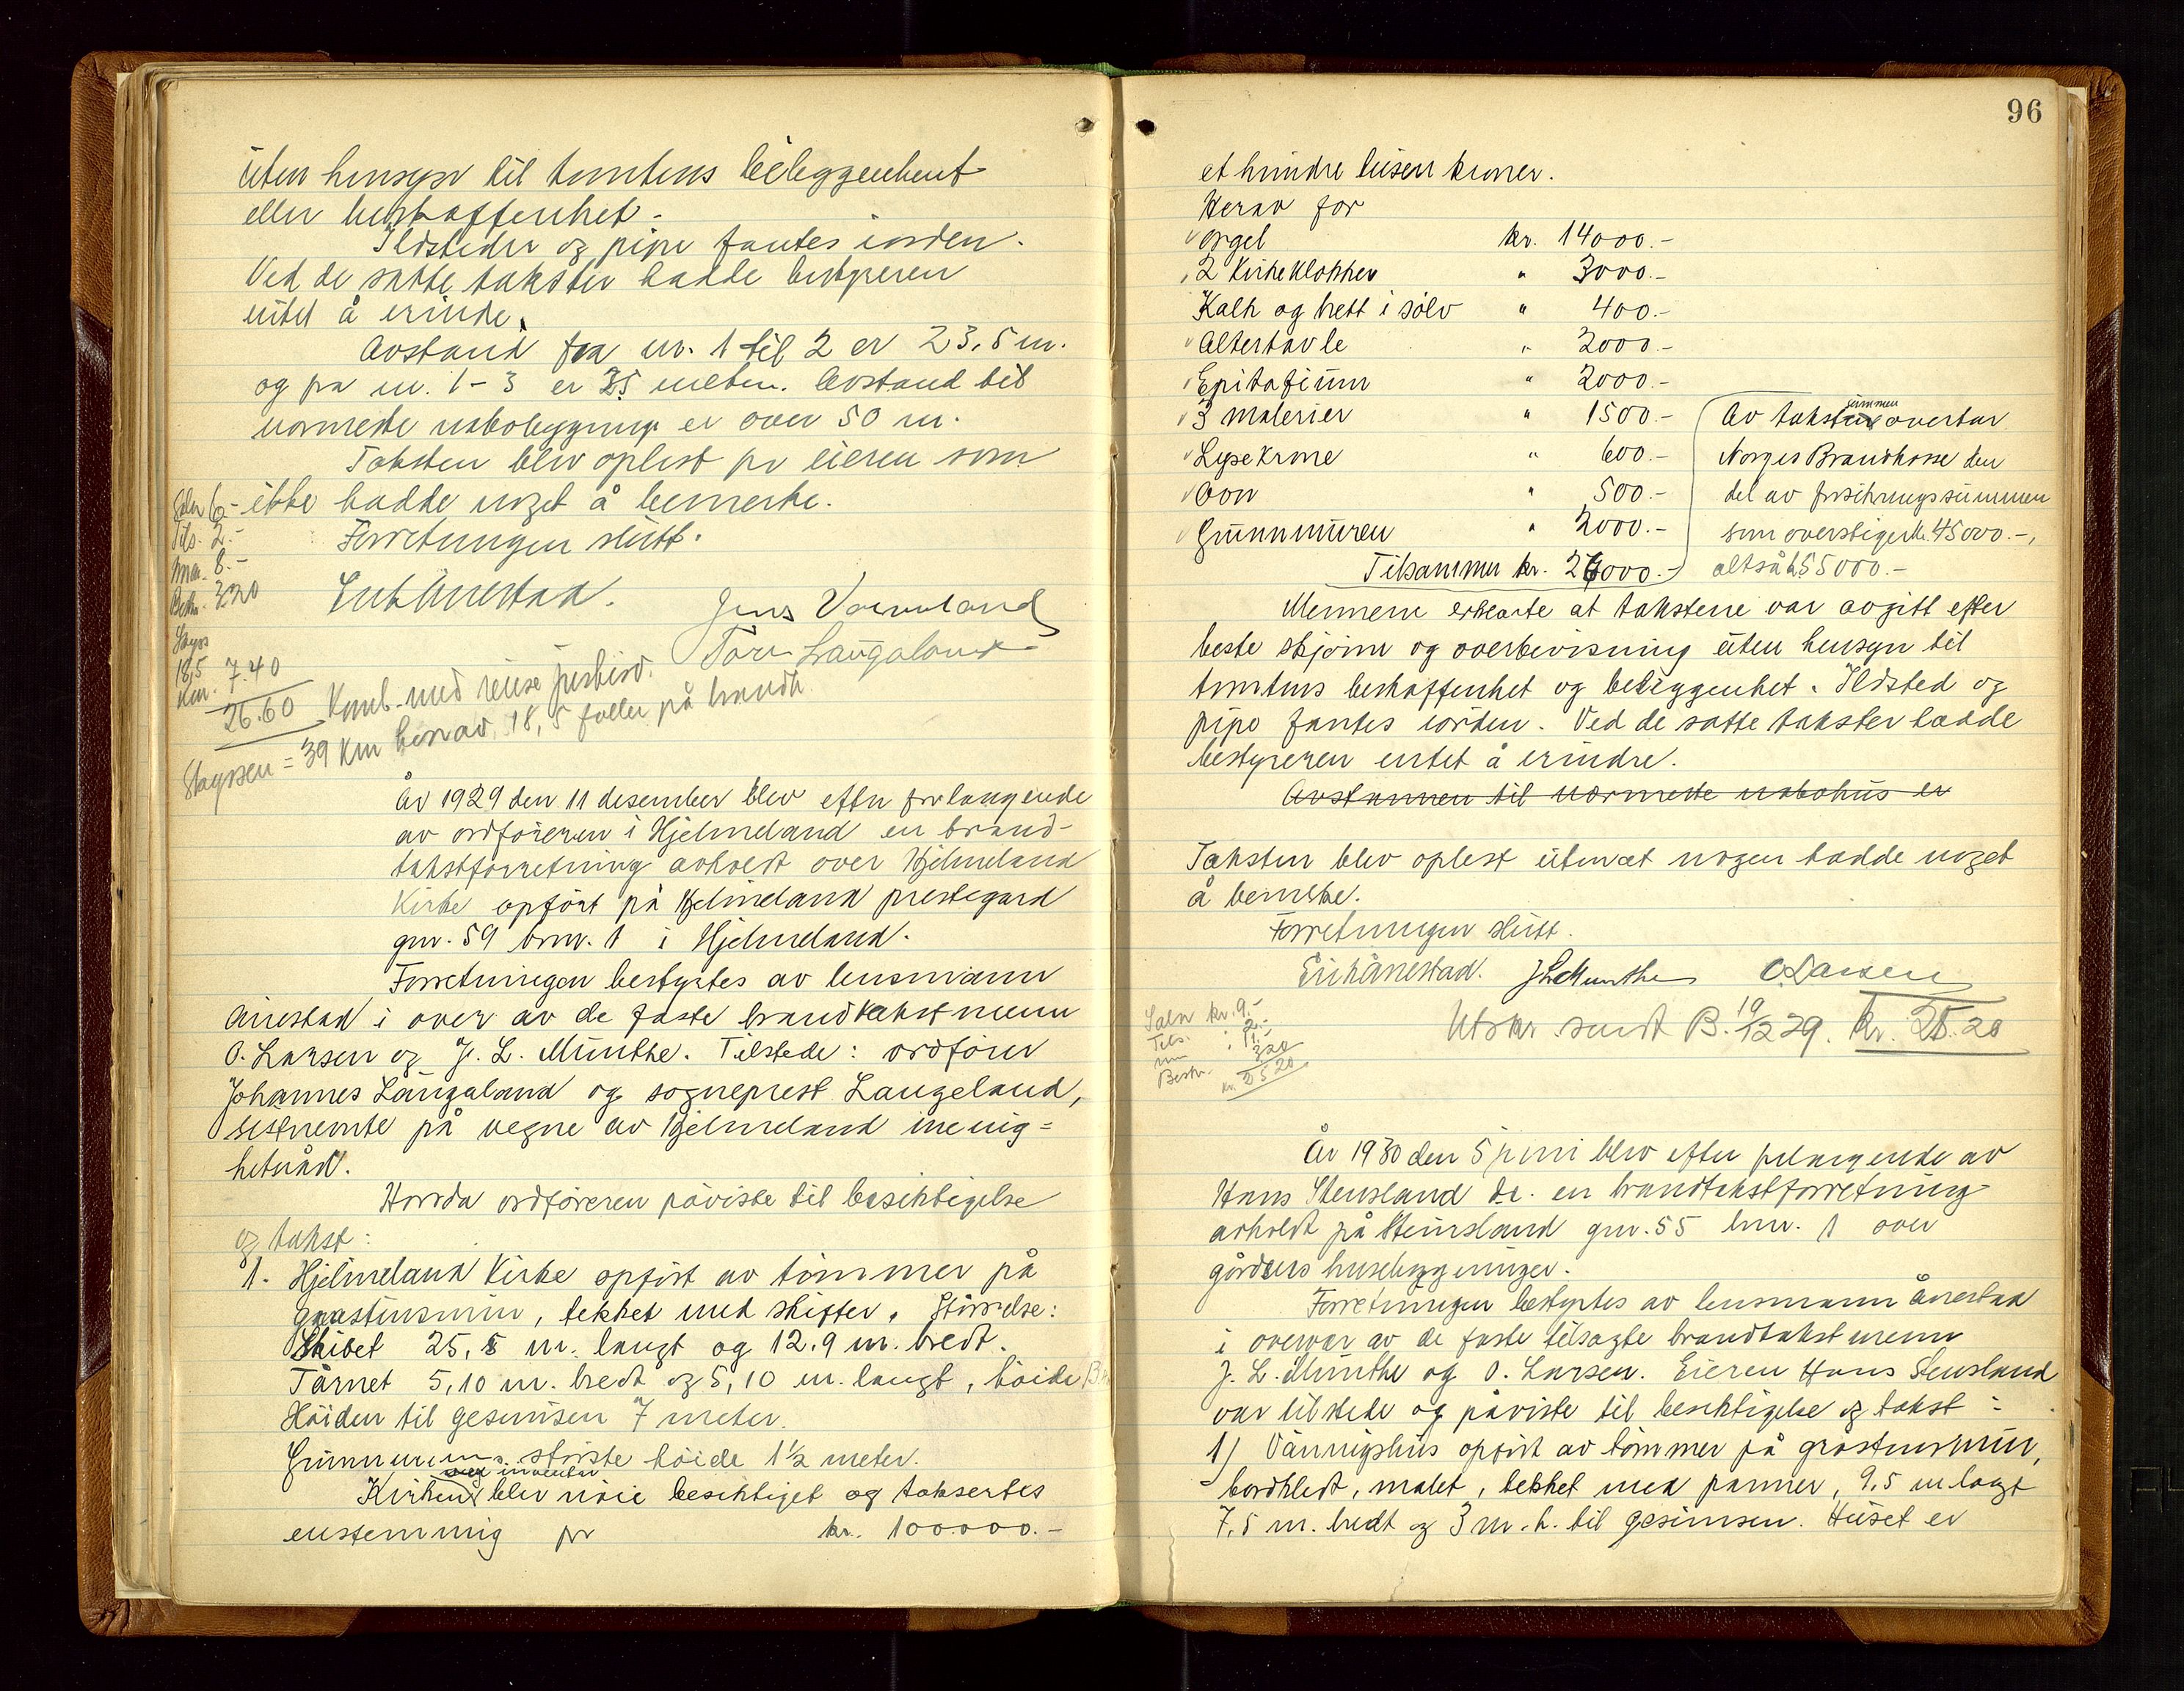 uten hensyn til tomtens beleggenhet
eller beskaffenhet.
Ildsteder og pipe fantes iorden.
Ved de satte takster hadde bestyreren
intet å erindre.
Avstand fra nr. 1 til 2 er 23,5 m.
og fra nr. 1-3 er 35 meter. Avstand til
nærmeste nabobygning er over 50 m.
Taksten blev oplest for eieren som
ikke hadde noget å bemerke.
Forretningen slutt.
6.-
Tils. 2.-
8.-
Bestr. 3.20
Skyss
18,5 km. 7.40
26.60
Erik Ånestad.
Jens Vormeland
Tore Laugaland
Komb. med reise
Skyssen = 39 km herav 18,5 faller på brandt.
År 1929 den 11 desember blev efter forlangende
av ordföreren i Hjelmeland en brand-
takstforretning avholdt over Hjelmeland
Kirke opfört på Hjelmeland prestegard
gnr. 59 bnr. 1 i Hjelmeland.
Forretningen bestyrtes av lensmann
Ånestad i overv av de faste brandtakstmenn
O. Larsen og J. L. Munthe. Tilstede: ordförer
Johannes Laugaland og sogneprest Laugeland,
sistnevnte på vegne av Hjelmeland menig=
hetsråd.
Hvorda ordföreren påviste til besiktigelse
og takst:
1. Hjelmeland Kirke opfört av tömmer på
graastensmur, tekket med skifter. Störrelse:
Skibet 25,5 m. langt og 12,9 m. bredt.
Tårnet 5,10 m. bredt og 5,10 m. langt, höide
Höiden til gesimsen 7 meter.
Grunnmurens störste höide 1½ meter.
med inventar
Kirken blev nöie besiktiget og taksertes
enstemmig for kr. 100.000.-
96
et hundre tusen kroner.
Herav for
Orgel kr. 14000.-
2 Kirkeklokker " 3000.-
Kalk og brett i sölv " 400.-
Altertavle " 2000.-
Epitafium " 2000.-
3 Malerier " 1500.-
Lysekrone " 600.-
Ovn " 500.-
Grunnmuren " 2000.-
Tilsammen kr. 26000.-
Av takstsummen overtar
Norges Brandkasse den
del av forsikringssummen
som overstiger kr. 45000.-,
altså kr. 55000.-
Mennene erklærte at takstene var avgitt efter
beste skjönn og overbevisning uten hensyn til
tomtens beskaffenhet og beliggenhet. Ildsted og
pipe fantes iorden. Ved de satte takster hadde
bestyreren intet å erindre.
Avstannen til nærmeste nabohus er
Taksten blev oplest uten at nogen hadde noget
å bemerke.
Forretningen slutt.
Erik Ånestad. J L Munthe O. Larsen
Salær kr. 9.-
Tils. " 2.-
" 11.-
Bestr. 3.20
kr. 25.20
Utskr. sendt B. 19/12 29. kr. 25.20
År 1930 den 5 juni blev efter forlangende av
Hans Stensland de. en brandtakstforretning
avholdt på Steinsland gnr. 55 bnr. 1 over
gårdens husebygninger.
Forretningen bestyrtes av lensmann Ånestad
i overvær av de faste tilsagte brandtakstmenn
J. L. Munthe og O. Larsen. Eieren Hans Stensland
var tilstede og påviste til besiktigelse og takst:
1) Våningshus opfört av tömmer på gråstensmur,
bordkledt, malet, tekket med panner, 9,5 m langt
7,5 m. bredt og 3 m. h. til gesimsen. Huset er